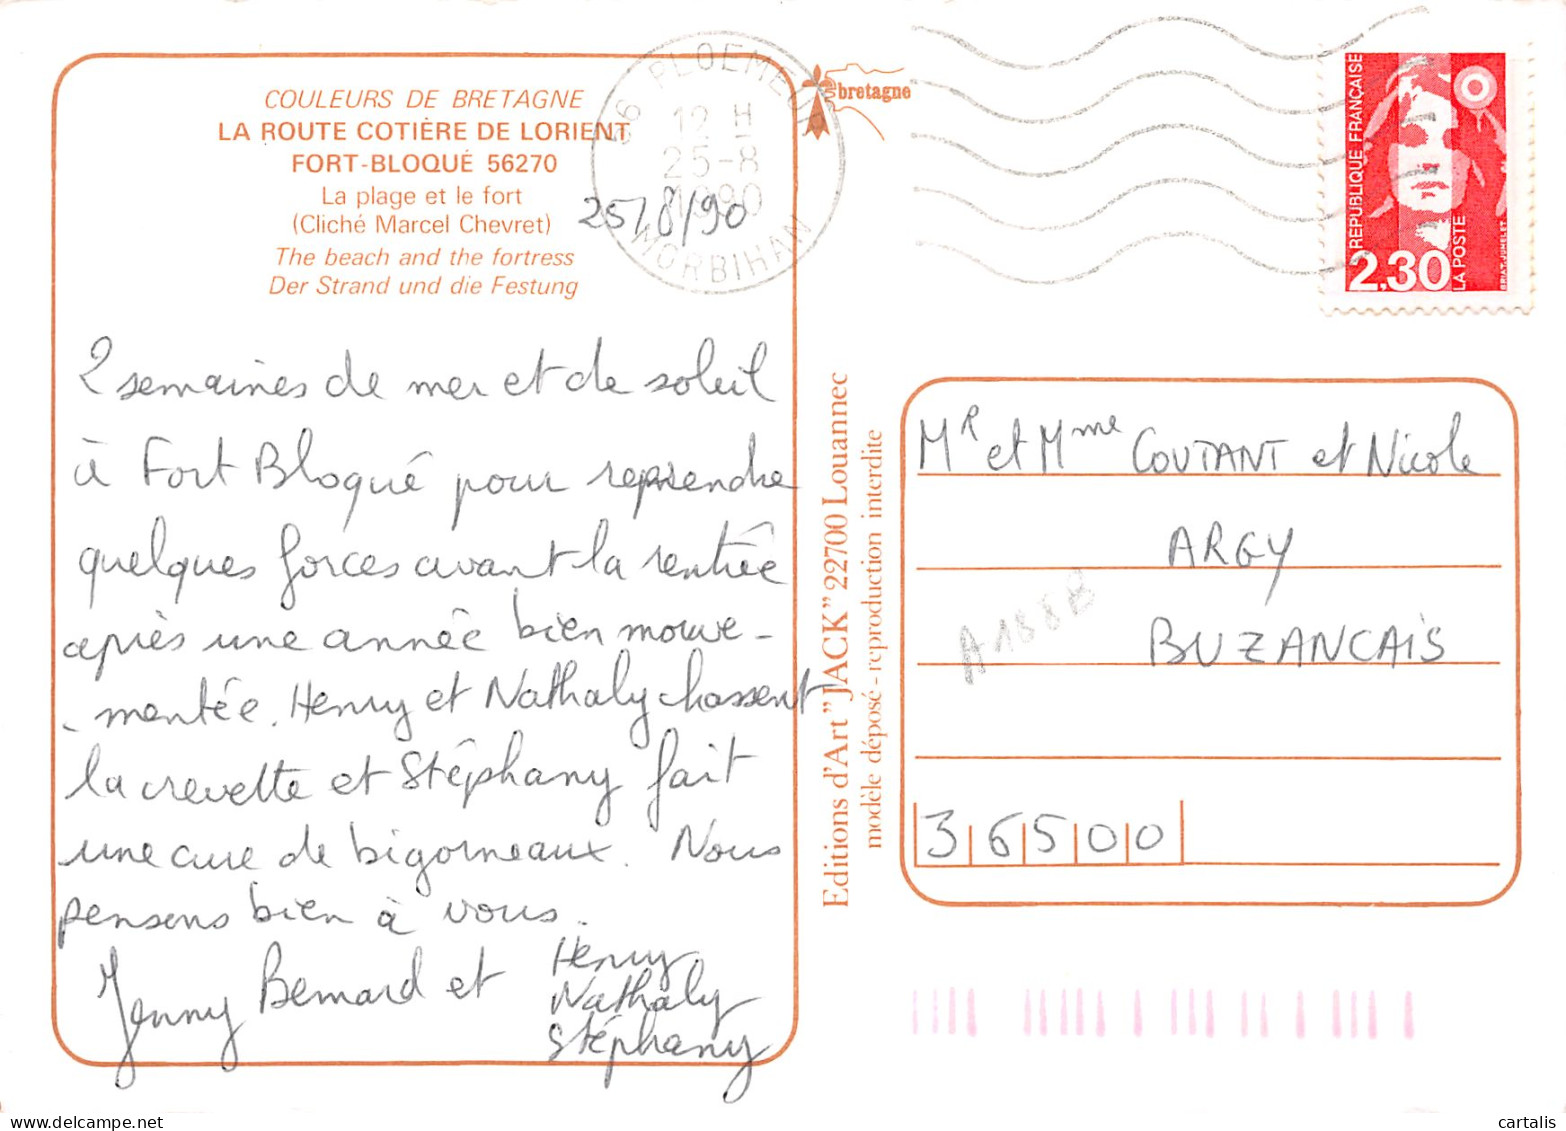 COULEURS DE BRETAGNE
LA ROUTE COTIÈRE DE LORIENT
FORT-BLOQUÉ 56270
La plage et le fort
(Cliché Marcel Chevret)
The beach and the fortress
Der Strand und die Festung
56 PLOEMEUR
12 H
25-8
1990
MORBIHAN
25/8/90
bretagne
REPUBLIQUE FRANÇAISE
2,30
LA POSTE
BRIAT-JUMELET
2 semaines de mer et de soleil
à Fort Bloqué pour reprendre
quelques forces avant la rentrée
après une année bien mouve-
-mentée. Henry et Nathaly chassent
la crevette et Stéphany fait
une cure de bigorneaux. Nous
pensons bien à vous.
Jenny Bernard et Henry
Nathaly
Stéphany
Editions d'Art "JACK" 22700 Louannec
modèle déposé - reproduction interdite
MR et Mme COUTANT et Nicole
ARGY
BUZANCAIS
A188B
36500
cartalis